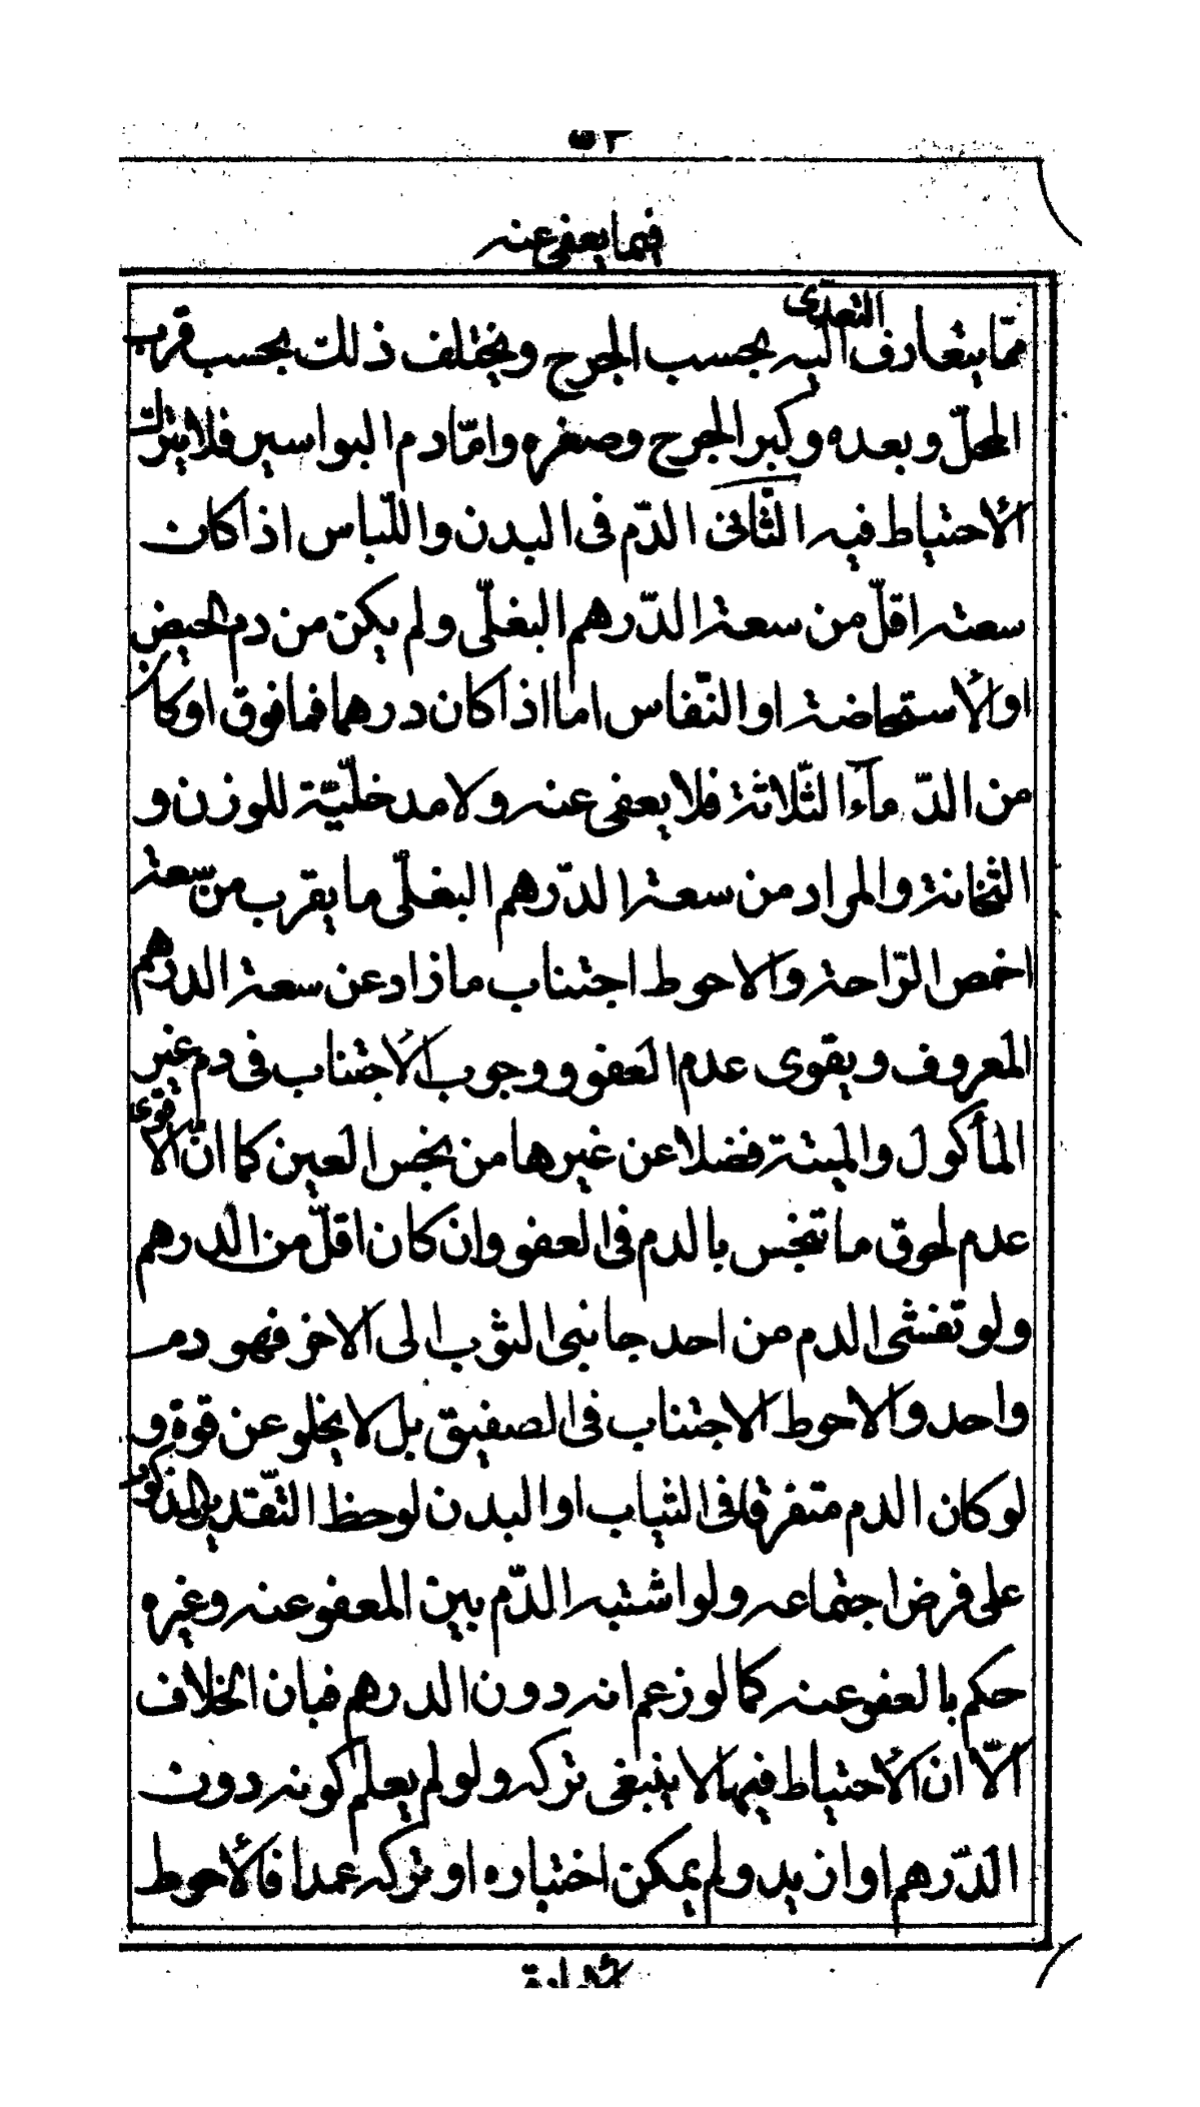 ٥٢
فيما يعفى عنه
ممّا يتعارف التعدّى اليه بحسب الجرح ويختلف ذلك بحسب قرب
المحلّ وبعده وكبر الجرح وصغره وامّا دم البواسير فلا يترك
الأحتياط فيه الثّانى الدّم فى البدن واللّباس اذا كان
سعته اقلّ من سعة الدّرهم البغلّى ولم يكن من دم الحيض
او الأستحاضة او النّفاس اما اذا كان درهما فما فوق او كان
من الدّمآء الثّلاثة فلا يعفى عنه ولا مدخليّة للوزن و
الثخانة والمراد من سعة الدّرهم البغلّى ما يقرب من سعة
اخمص الرّاحة والاحوط اجتناب ما زاد عن سعة الدرهم
المعروف ويقوى عدم العفو ووجوب الأجتناب فى دم غير
المأكول والميتة فضلا عن غيرها من نجس العين كما انّ الاقوى
عدم لحوق ما تنجس بالدم فى العفو وان كان اقلّ من الدرهم
ولو تفشى الدم من احد جانبى الثوب الى الاخر فهو دم
واحد والاحوط الاجتناب فى الصفيق بل لا يخلو عن قوة و
لو كان الدم متفرقا فى الثياب او البدن لوحظ التّقدير المذكور
على فرض اجتماعه ولو اشتبه الدّم بين المعفو عنه وغيره
حكم بالعفو عنه كما لو زعم انه دون الدرهم فبان الخلاف
الّا ان الأحتياط فيها لا ينبغى تركه ولو لم يعلم كونه دون
الدّرهم او ازيد ولم يمكن اختباره او تركه عمدا فالأحوط